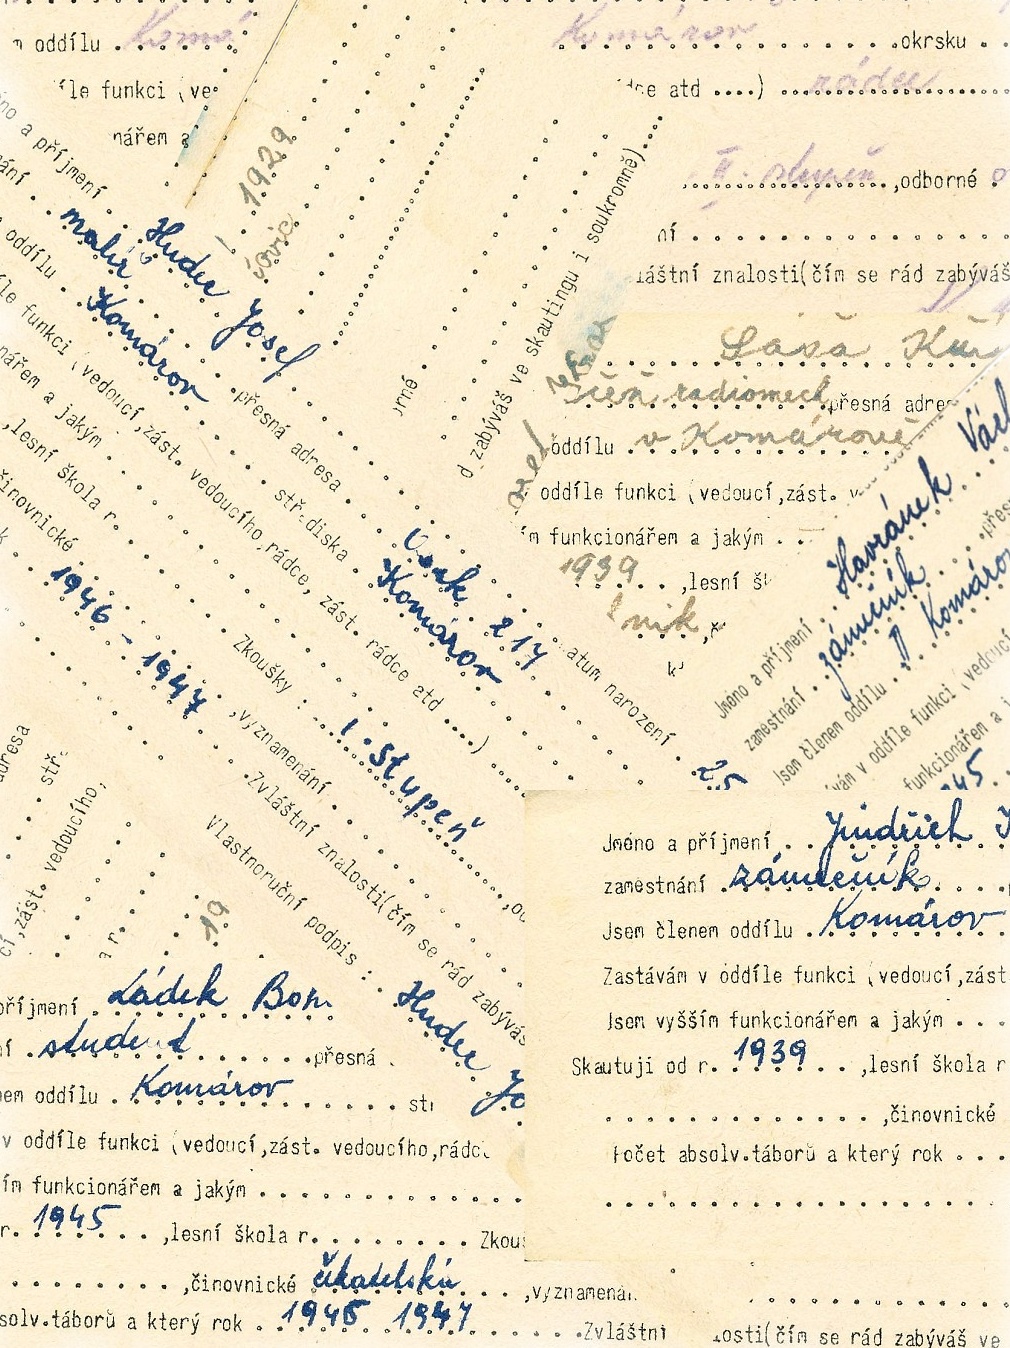 m oddílu . Komá
Komárov . okrsku . .
íle funkci (ve
atd ....) rádce
nářem a
II. stupeň ,odborné
1929
no a příjmení . Huder Josef
malíř
ní . . . . . . . . . .
láštní znalosti(čím se rád zabýváš
d zabýváš ve skautingu i soukromně)
oddílu . Komárov .přesná adresa
le funkci (vedoucí,zást. vedoucího,rádce, zást. rádce atd ....)
stř.diska . Komárov
Osek 217
nářem a jakým
,lesní škola r. Zkoušky : . 1. stupeň
činovnické ,vyznamenání
1946 - 1947 .Zvláštní znalosti(čím se rád zabýváš
Vlastnoruční podpis : Huder Jo
atum narození . 25
orné
Sáša
radiomech přesná adre
oddílu v Komárově
oddíle funkci (vedoucí,zást. v
m funkcionářem a jakým . .
1939 . . ,lesní š
nik
Jméno a příjmení . Havránek Václ
zaměstnání . zámečník .přes
Jsem členem oddílu . Komárov
vám v oddíle funkci (vedoucí
funkcionářem a j
945
adresa
stř.
cí,zást. vedoucího,
a r.
19
Jméno a příjmení . . Jindřich
zamestnání . zámečník
Jsem členem oddílu . Komárov
Zastávám v oddíle funkci (vedoucí,zást
Jsem vyšším funkcionářem a jakým . . .
Skautuji od r. 1939 . . . ,lesní škola r
. . . . . . . . . . . . . ,činovnické
Počet absolv.táborů a který rok . . .
příjmení . Ládek Boh
í . student . . . . . . .přesná
em oddílu . Komárov . . . . . . . stř
v oddíle funkci (vedoucí,zást. vedoucího,rádc
ím funkcionářem a jakým . . . . . . . . . . . .
r. 1945 . . . ,lesní škola r. . . . . . . . . Zkou
. . . . . . . . ,činovnické čekatelská . . . ,vyznamenán
solv.táborů a který rok . 1946 1947 . . . . .Zvláštní
losti(čím se rád zabýváš ve